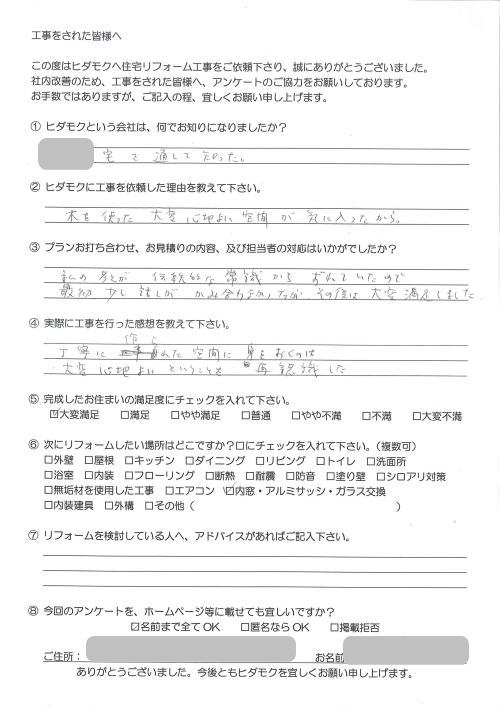 工事をされた皆様へ
この度はヒダモクへ住宅リフォーム工事をご依頼下さり、誠にありがとうございました。
社内改善のため、工事をされた皆様へ、アンケートのご協力をお願いしております。
お手数ではありますが、ご記入の程、宜しくお願い申し上げます。
① ヒダモクという会社は、何でお知りになりましたか？
宅を通して知った。
② ヒダモクに工事を依頼した理由を教えて下さい。
木を使った大変心地よい空間が気に入ったから。
③ プランお打ち合わせ、お見積りの内容、及び担当者の対応はいかがでしたか？
私の考えが伝統的な常識からずれていたので
最初少し話しがかみ合わなかったが その後は大変満足しました
④ 実際に工事を行った感想を教えて下さい。
丁寧に作られた空間に身をおくのは
大変心地よいということを再認識した
⑤ 完成したお住まいの満足度にチェックを入れて下さい。
☑大変満足 □満足 □やや満足 □普通 □やや不満 □不満 □大変不満
⑥ 次にリフォームしたい場所はどこですか？□にチェックを入れて下さい。（複数可）
□外壁 □屋根 □キッチン □ダイニング □リビング □トイレ □洗面所
□浴室 □内装 □フローリング □断熱 □耐震 □防音 □塗り壁 □シロアリ対策
□無垢材を使用した工事 □エアコン ☑内窓・アルミサッシ・ガラス交換
□内装建具 □外構 □その他（ ）
⑦ リフォームを検討している人へ、アドバイスがあればご記入下さい。
⑧ 今回のアンケートを、ホームページ等に載せても宜しいですか？
☑名前まで全てOK □匿名ならOK □掲載拒否
ご住所： お名前
ありがとうございました。今後ともヒダモクを宜しくお願い申し上げます。